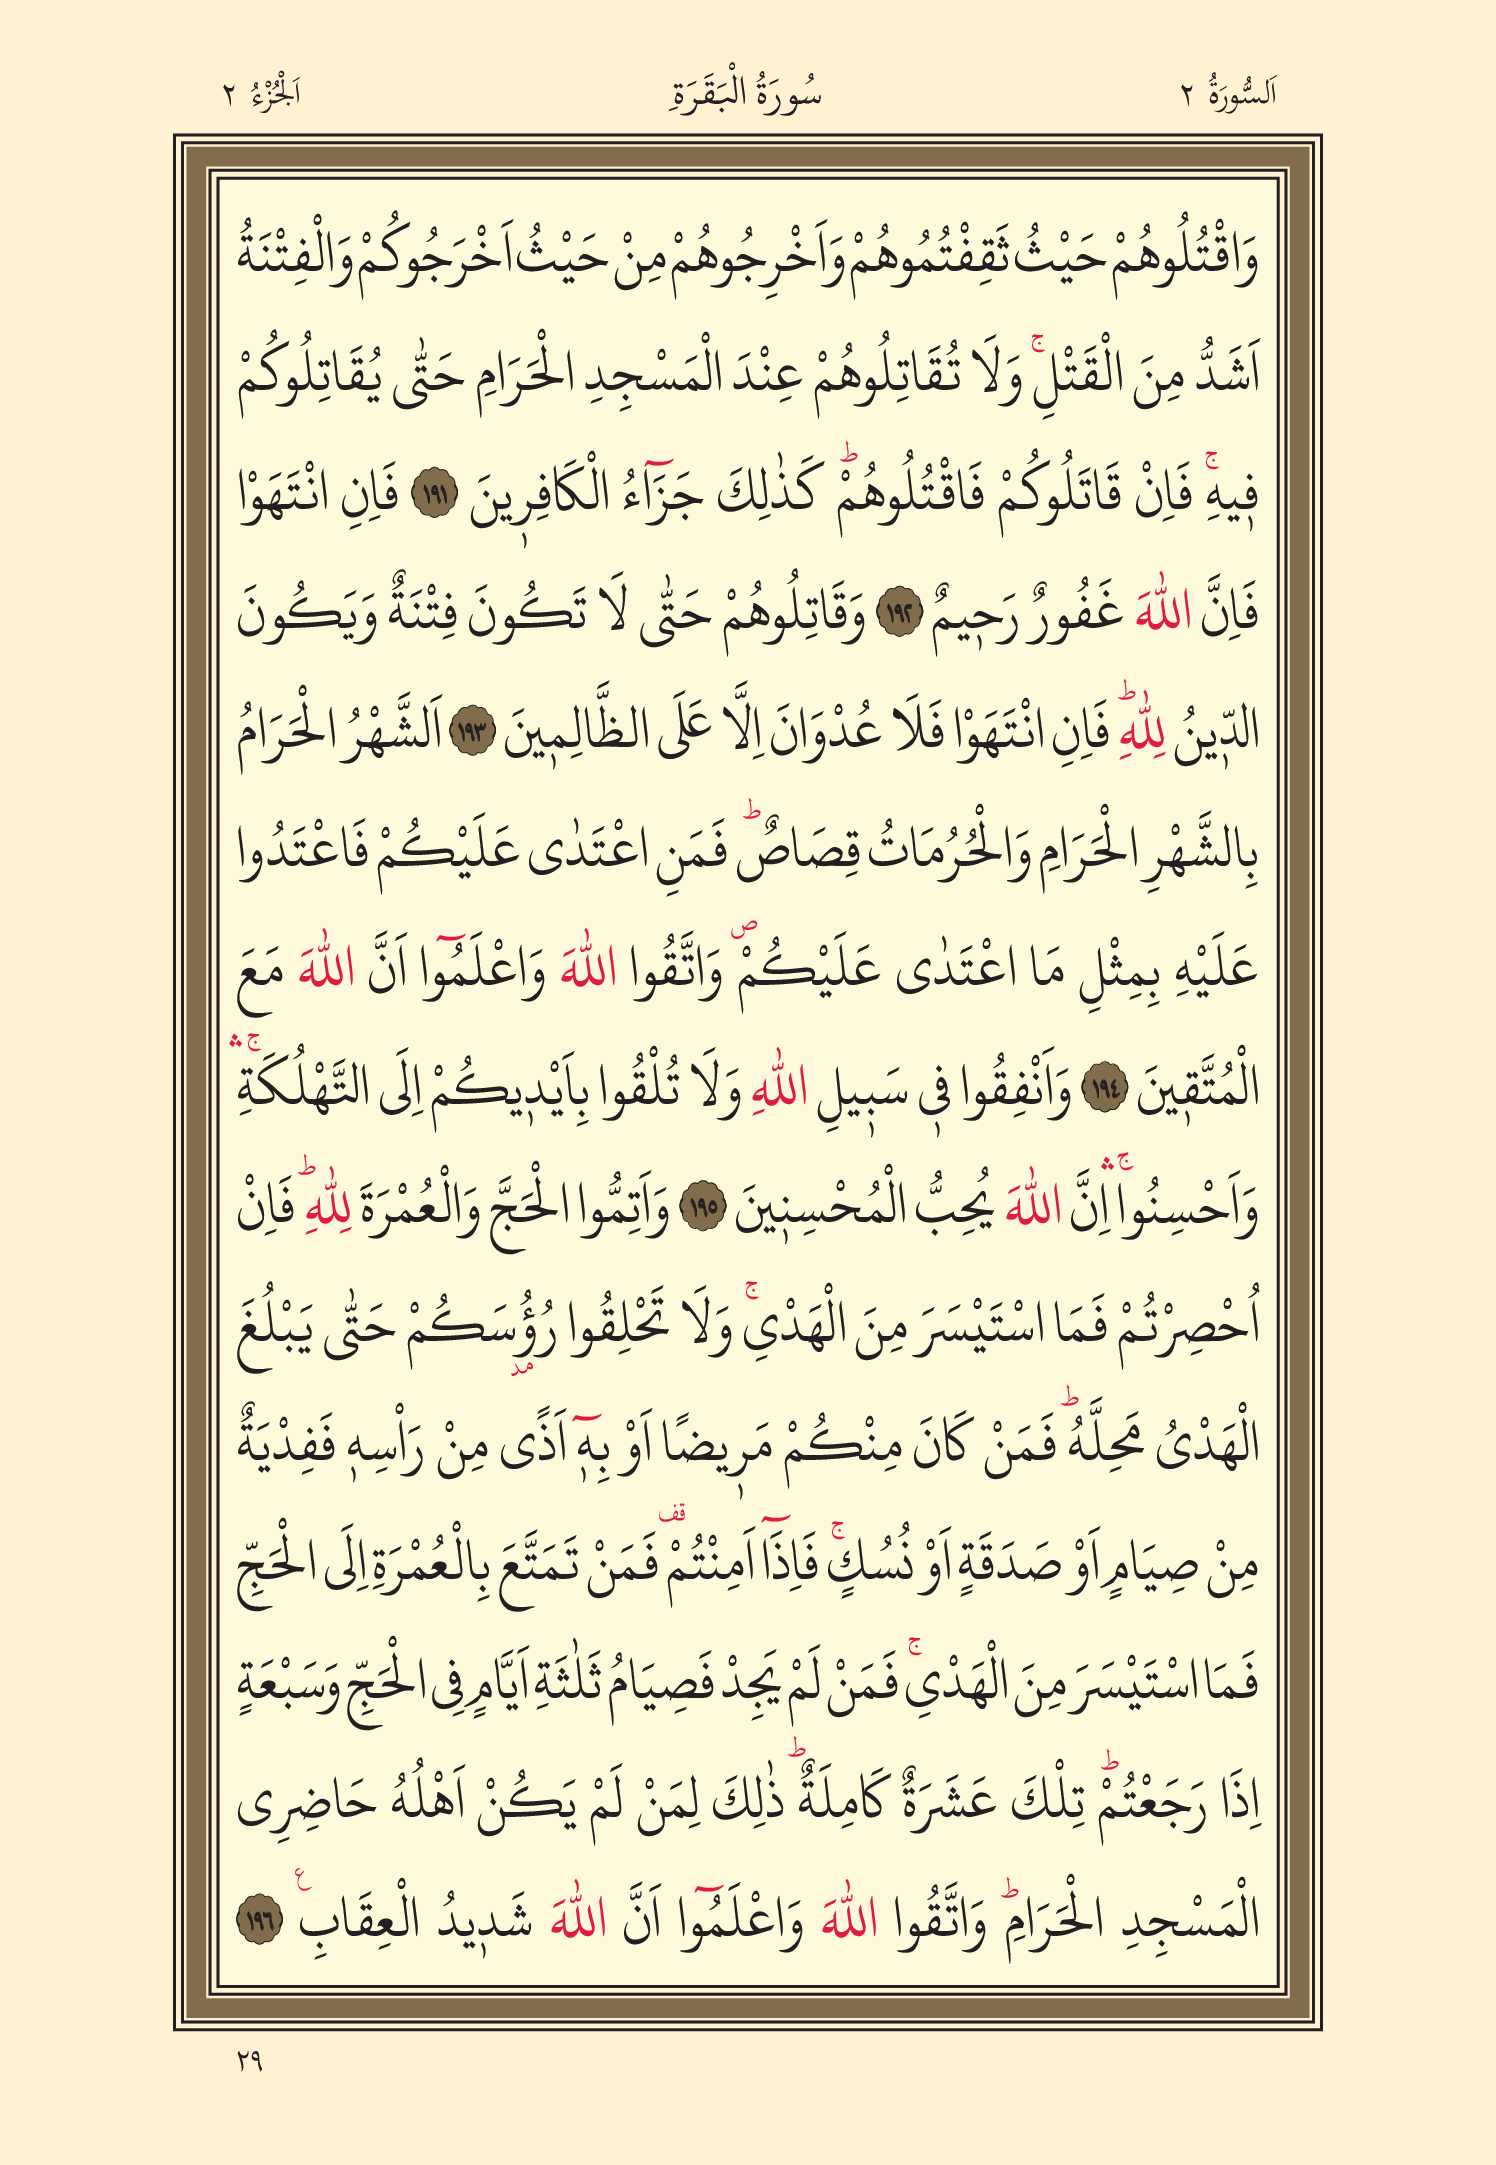 اَلسُّورَةُ ٢ سُورَةُ الْبَقَرَةِ اَلْجُزْءُ ٢
وَاقْتُلُوهُمْ حَيْثُ ثَقِفْتُمُوهُمْ وَاَخْرِجُوهُمْ مِنْ حَيْثُ اَخْرَجُوكُمْ وَالْفِتْنَةُ
اَشَدُّ مِنَ الْقَتْلِۚ وَلَا تُقَاتِلُوهُمْ عِنْدَ الْمَسْجِدِ الْحَرَامِ حَتّٰى يُقَاتِلُوكُمْ
ف۪يهِۚ فَاِنْ قَاتَلُوكُمْ فَاقْتُلُوهُمْۜ كَذٰلِكَ جَزَٓاءُ الْكَافِر۪ينَ ﴿١٩١﴾ فَاِنِ انْتَهَوْا
فَاِنَّ اللّٰهَ غَفُورٌ رَح۪يمٌ ﴿١٩٢﴾ وَقَاتِلُوهُمْ حَتّٰى لَا تَكُونَ فِتْنَةٌ وَيَكُونَ
الدّ۪ينُ لِلّٰهِۜ فَاِنِ انْتَهَوْا فَلَا عُدْوَانَ اِلَّا عَلَى الظَّالِم۪ينَ ﴿١٩٣﴾ اَلشَّهْرُ الْحَرَامُ
بِالشَّهْرِ الْحَرَامِ وَالْحُرُمَاتُ قِصَاصٌۜ فَمَنِ اعْتَدٰى عَلَيْكُمْ فَاعْتَدُوا
عَلَيْهِ بِمِثْلِ مَا اعْتَدٰى عَلَيْكُمْۖ وَاتَّقُوا اللّٰهَ وَاعْلَمُٓوا اَنَّ اللّٰهَ مَعَ
الْمُتَّق۪ينَ ﴿١٩٤﴾ وَاَنْفِقُوا ف۪ي سَب۪يلِ اللّٰهِ وَلَا تُلْقُوا بِاَيْد۪يكُمْ اِلَى التَّهْلُكَةِۚۛ
وَاَحْسِنُواۚۛ اِنَّ اللّٰهَ يُحِبُّ الْمُحْسِن۪ينَ ﴿١٩٥﴾ وَاَتِمُّوا الْحَجَّ وَالْعُمْرَةَ لِلّٰهِۜ فَاِنْ
اُحْصِرْتُمْ فَمَا اسْتَيْسَرَ مِنَ الْهَدْيِۚ وَلَا تَحْلِقُوا رُؤُ۫سَكُمْ حَتّٰى يَبْلُغَ
الْهَدْيُ مَحِلَّهُۜ فَمَنْ كَانَ مِنْكُمْ مَر۪يضًا اَوْ بِه۪ٓ اَذًى مِنْ رَاْسِه۪ فَفِدْيَةٌ
مِنْ صِيَامٍ اَوْ صَدَقَةٍ اَوْ نُسُكٍۚ فَاِذَٓا اَمِنْتُمْ۠ فَمَنْ تَمَتَّعَ بِالْعُمْرَةِ اِلَى الْحَجِّ
فَمَا اسْتَيْسَرَ مِنَ الْهَدْيِۚ فَمَنْ لَمْ يَجِدْ فَصِيَامُ ثَلٰثَةِ اَيَّامٍ فِي الْحَجِّ وَسَبْعَةٍ
اِذَا رَجَعْتُمْۜ تِلْكَ عَشَرَةٌ كَامِلَةٌۜ ذٰلِكَ لِمَنْ لَمْ يَكُنْ اَهْلُهُ حَاضِرِي
الْمَسْجِدِ الْحَرَامِۜ وَاتَّقُوا اللّٰهَ وَاعْلَمُٓوا اَنَّ اللّٰهَ شَد۪يدُ الْعِقَابِ ع ﴿١٩٦﴾
٢٩